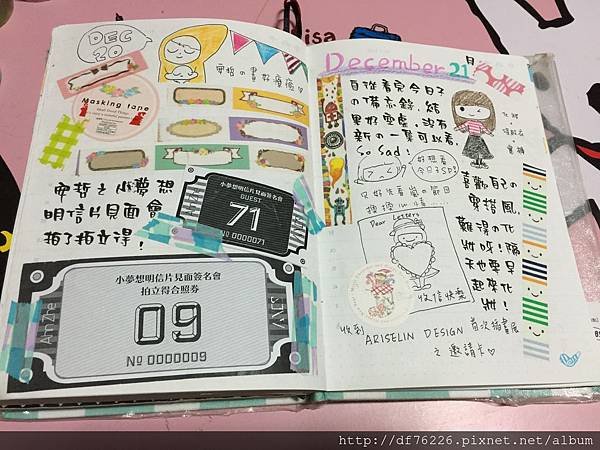 DEC
20
安哲の畫好療癒
Masking tape
安哲之小夢想
明信片見面會
拍了拍立得!
小夢想明信片見面簽名會
GUEST
71
Nº 0000071
小夢想明信片見面簽名會
拍立得合照券
09
Nº 0000009
AnZhe
isa
December 21
自從看完今日子
の備忘錄,結
果好空虛,沒有
新の一集可以看,
So Sad!
好想看
今日子SP!
只好先看嵐の節目
換換心情……
喜歡自己の
穿搭風,
難得の化
妝呀!隔
天也要早
起來化
妝!
Dear Letters
收信快樂
收到 ARISELIN DESIGN 首次插畫展
之邀請卡♡
http://df76226.pixnet.net/album